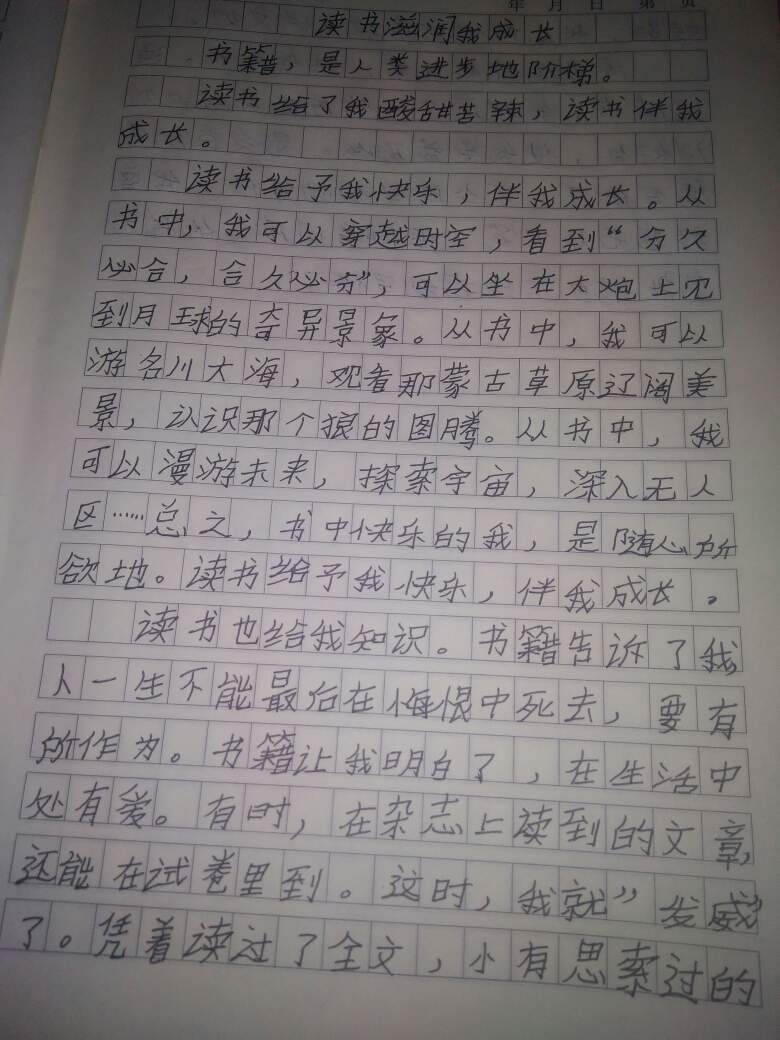 年 月 日 第 页
读书滋润我成长
书籍，是人类进步地阶梯。
读书给了我酸甜苦辣，读书伴我
成长。
读书给予我快乐，伴我成长。从
书中，我可以穿越时空，看到“分久
必合，合久必分”，可以坐在大炮上见
到月球的奇异景象。从书中，我可以
游名川大海，观看那蒙古草原辽阔美
景，认识那个狼的图腾。从书中，我
可以漫游未来，探索宇宙，深入无人
区……总之，书中快乐的我，是随心所
欲地。读书给予我快乐，伴我成长。
读书也给我知识。书籍告诉了我，
人一生不能最后在悔恨中死去，要有
所作为。书籍让我明白了，在生活中
处有爱。有时，在杂志上读到的文章，
还能在试卷里到。这时，我就”发威”
了。凭着读过了全文，小有思索过的